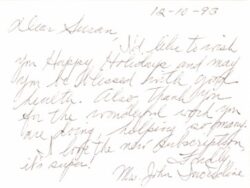 12-10-93
Dear Susan,
I'd like to wish
you Happy Holidays and may
you be blessed with good
Also, Thank You
for the wonderful work you
are doing, helping so many.
I love the new subscription
it's super!
Mrs. John